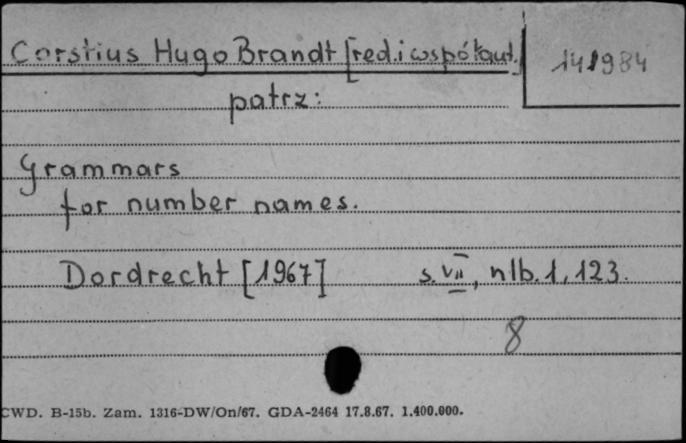 Corstius Hugo Brandt [red. i współaut.]
141984
patrz:
Grammars
for number names.
Dordrecht [1967] s. VII, nlb. 1, 123.
8
CWD. B-15b. Zam. 1316-DW/On/67. GDA-2464 17.8.67. 1.400.000.